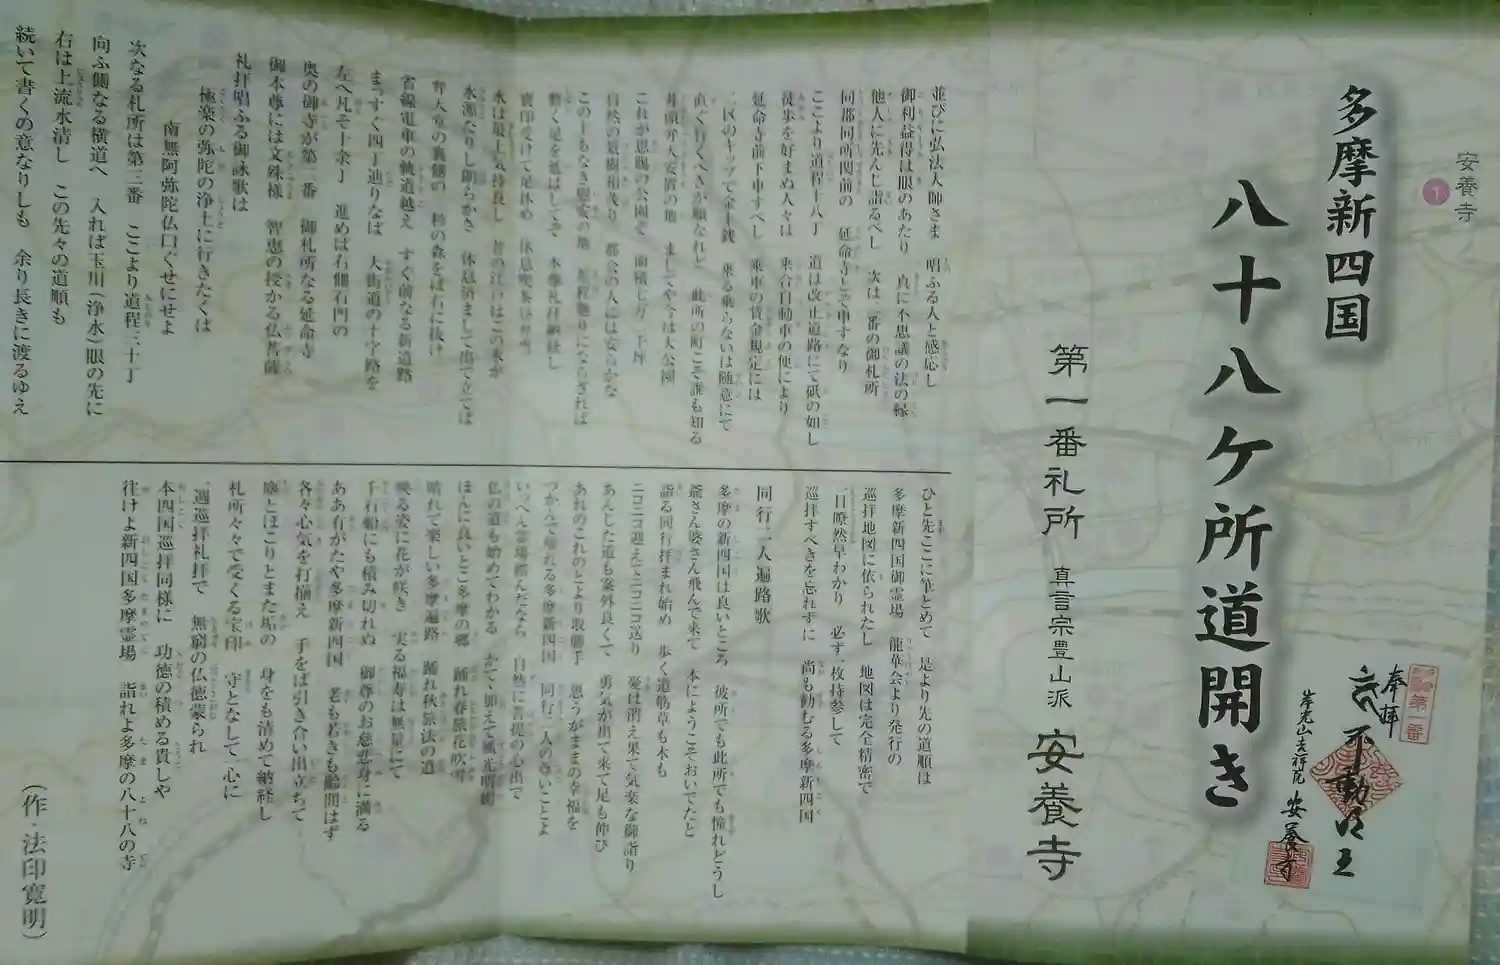 安養寺
1
多摩新四国
八十八ケ所道開き
奉拝
不動明王
岸光山吉祥院
安養寺
第一番
第一番礼所 真言宗豊山派 安養寺
並びに弘法大師さま 唱ふる人と感応し
御利益得は眼のあたり 真に不思議の法の縁
他人に先んじ詣るべし 次は二番の御札所
同郡同所関前の 延命寺とぞ申すなり
ここより道程十八丁 道は改正道路にて砥の如し
徒歩を好まぬ人々は 乗合自動車の便により
延命寺前下車すべし 乗車の賃金規定には
二区のキップで金十銭 乗る乗らないは随意にて
直ぐ行くべきが順なれど 此所の町こそ誰も知る
井頭弁天安置の地 ましてや今は大公園
これが恩賜の公園ぞ 面積七万二千坪
自然の景樹相茂り 都会の人には安らかな
この上もなき慰安の地
暫く足を延ばしてぞ 本尊礼拝納経し
寶印受けて足休め 休息喫茶昼弁当
水は最上気持良し 昔の江戸はこの水が
水源たりし朗らかさ 休息済まして出で立ては
弁天堂の裏側の 杉の森をば右に抜け
省線電車の軌道越え すぐ前なる新道路
まっすぐ四丁辿りなば 大街道の十字路を
左へ凡そ十余丁 進めば右側石門の
奥の御寺が第二番 御札所なる延命寺
御本尊には文殊様 智恵の授かる仏菩薩
礼拝唱ふる御詠歌は
極楽の弥陀の浄土に行きたくば
南無阿弥陀仏口ぐせにせよ
次なる札所は第三番 ここより道程二十丁
向ふ側なる横道へ 入れば玉川（浄水）眼の先に
右は上流水清し この先々の道順も
続いて書くの意なりしも 余り長きに渡るゆえ
ひと先ここに筆とめて 是より先の道順は
多摩新四国御霊場 龍華会より発行の
巡拝地図に依られたし 地図は完全精密で
一目瞭然早わかり 必ず一枚持参して
巡拝すべきを忘れずに 尚も勧むる多摩新四国
同行二人遍路歌
多摩の新四国は良いところ 彼所でも此所でも憧れどうし
爺さん婆さん飛んで来て 本にようこそおいでたと
詣る同行拝まれ始め 歩く道芻草も木も
ニコニコ迎えてニコニコ送り 憂は消え果て気楽な御詣り
あんした道も案外良くて 勇気が出て来て足も伸び
あれのこれのとより取勝手 思うがままの幸福を
つかんで帰れる多摩新四国 同行二人の尊いことよ
いっぺん霊場踏んだなら 自然に菩提の心出て
仏の道も始めてわかる かてゝ加えて風光明媚
ほんに良いとこ多摩の郷 踊れ春旅花吹雪
晴れて楽しい多摩遍路 踊れ秋旅法の道
映る姿に花が咲き 実る福寿は無量にて
千石船にも積み切れぬ 御尊のお慈悲身に満る
ああ有がたや多摩新四国 老も若きも齢問はず
各々心気を打揃え 手をば引き合い出立ちて
塵とほこりとまた垢の 身をも清めて納経し
札所々々で受くる宝印 守となして一心に
一週巡拝礼拝で 無窮の仏徳蒙られ
本四国巡拝同様に 功徳の積める貴しや
往けよ新四国多摩霊場 詣れよ多摩の八十八の寺
（作・法印寛明）